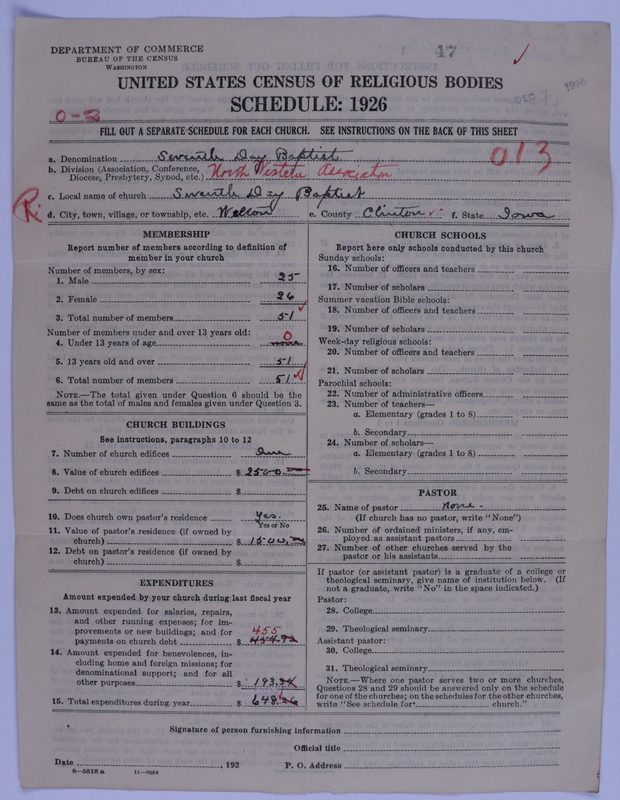 DEPARTMENT OF COMMERCE
BUREAU OF THE CENSUS
WASHINGTON
47
UNITED STATES CENSUS OF RELIGIOUS BODIES
SCHEDULE: 1926
DEC 7 1926
0-2
FILL OUT A SEPARATE SCHEDULE FOR EACH CHURCH. SEE INSTRUCTIONS ON THE BACK OF THIS SHEET
013
a. Denomination Seventh Day Baptist
b. Division (Association, Conference, Diocese, Presbytery, Synod, etc.) North Western Association
c. Local name of church Seventh Day Baptist
R.
d. City, town, village, or township, etc. Welton e. County Clinton f. State Iowa
MEMBERSHIP
Report number of members according to definition of
member in your church
Number of members, by sex:
1. Male 25
2. Female 26
3. Total number of members 51
Number of members under and over 13 years old:
4. Under 13 years of age none 0
5. 13 years old and over 51
6. Total number of members 51
NOTE.—The total given under Question 6 should be
same as the total of males and females given under Question 3.
CHURCH BUILDINGS
See instructions, paragraphs 10 to 12
7. Number of church edifices One
8. Value of church edifices $ 2500.
9. Debt on church edifices $
10. Does church own pastor's residence Yes.
Yes or No
11. Value of pastor's residence (if owned by
church) $ 1500.
12. Debt on pastor's residence (if owned by
church) $
EXPENDITURES
Amount expended by your church during last fiscal year
13. Amount expended for salaries, repairs,
and other running expenses; for im-
provements or new buildings; and for 455
payments on church debt $ 454.92
14. Amount expended for benevolences, in-
cluding home and foreign missions; for
denominational support; and for all
other purposes $ 193.34
15. Total expenditures during year $ 648.26
CHURCH SCHOOLS
Report here only schools conducted by this church
Sunday schools:
16. Number of officers and teachers
17. Number of scholars
Summer vacation Bible schools:
18. Number of officers and teachers
19. Number of scholars
Week-day religious schools:
20. Number of officers and teachers
21. Number of scholars
Parochial schools:
22. Number of administrative officers
23. Number of teachers—
a. Elementary (grades 1 to 8)
b. Secondary
24. Number of scholars—
a. Elementary (grades 1 to 8)
b. Secondary
PASTOR
25. Name of pastor None.
(If church has no pastor, write "None")
26. Number of ordained ministers, if any, em-
ployed as assistant pastors
27. Number of other churches served by the
pastor or his assistants
If pastor (or assistant pastor) is a graduate of a college or
theological seminary, give name of institution below. (If
not a graduate, write "No" in the space indicated.)
Pastor:
28. College
29. Theological seminary
Assistant pastor:
30. College
31. Theological seminary
NOTE.—Where one pastor serves two or more churches,
Questions 28 and 29 should be answered only on the schedule
for one of the churches; on the schedules for the other churches,
write "See schedule for church."
Signature of person furnishing information
Official title
Date , 192 P. O. Address
8-5512 a 11-9364